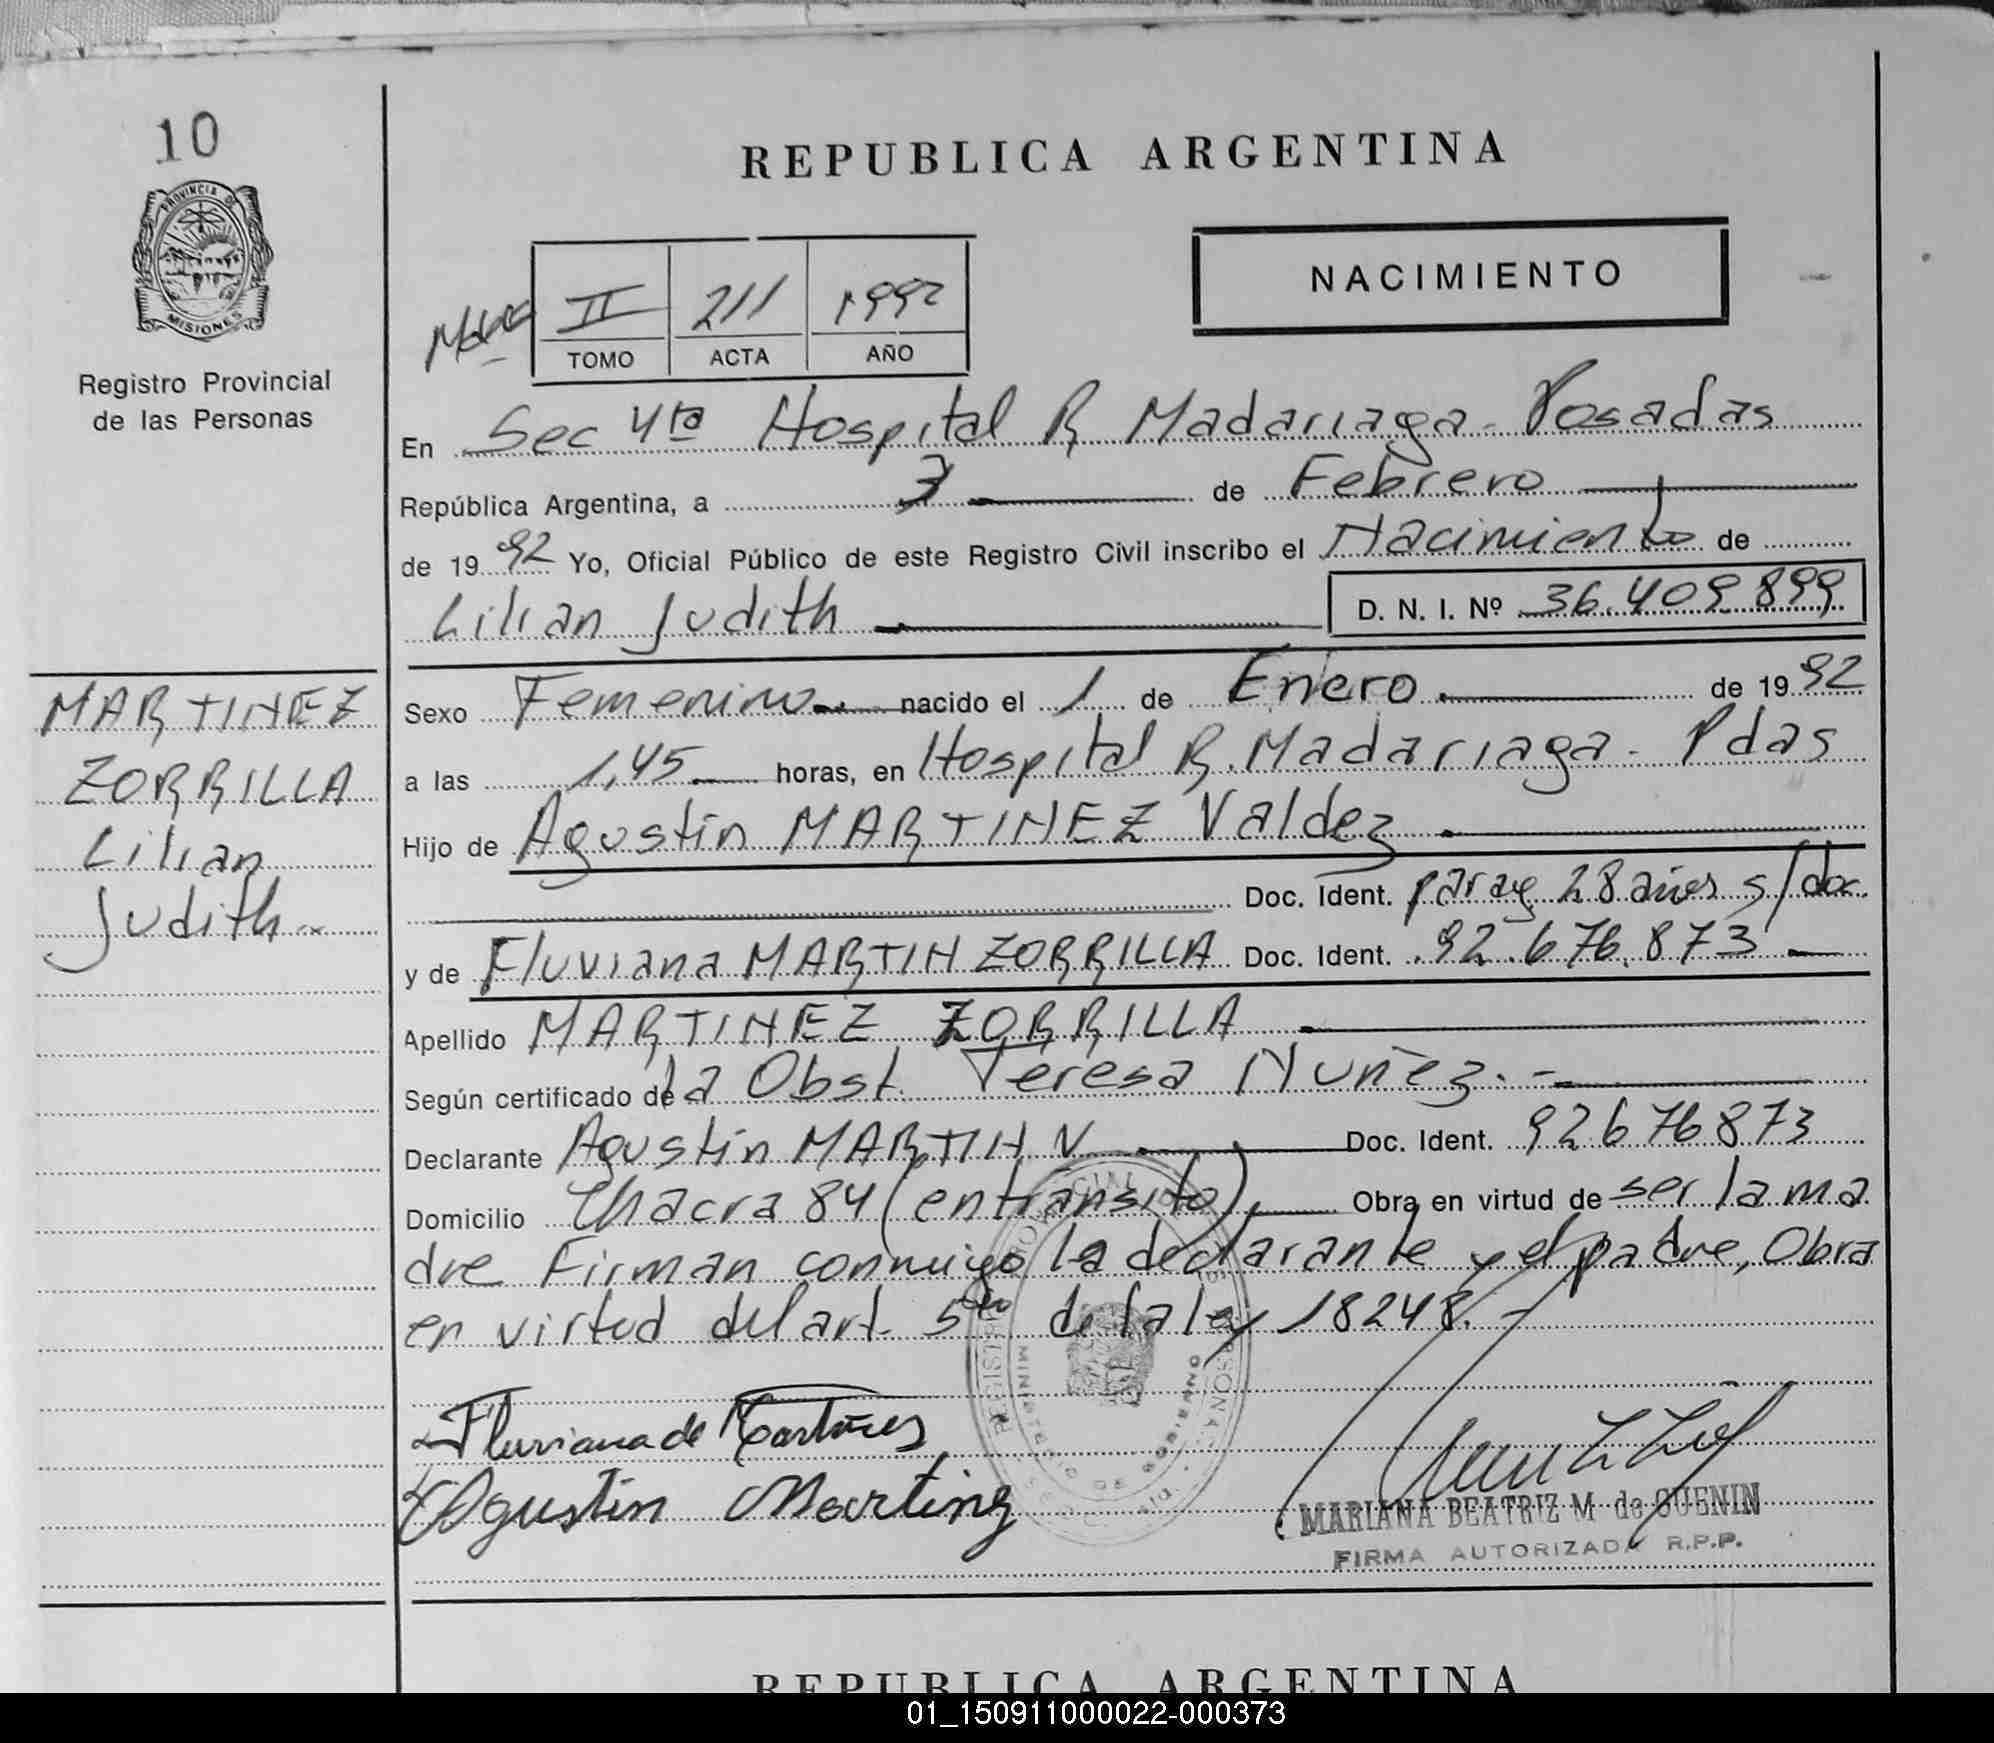 10
PROVINCIA DE
MISIONES
Registro Provincial
de las Personas
MARTINEZ
ZORRILLA
Lilian
Judith
REPUBLICA ARGENTINA
II 211 1992
TOMO ACTA AÑO
NACIMIENTO
En Sec 4ta Hospital R Madariaga - Posadas
República Argentina, a 3 de Febrero
de 1992 Yo, Oficial Público de este Registro Civil inscribo el Nacimiento de
Lilian Judith D. N. I. Nº 36.409.899
Sexo Femenino nacido el 1 de Enero de 1992
a las 1,45 horas, en Hospital R. Madariaga - Pdas
Hijo de Agustin MARTINEZ Valdez
Doc. Ident. parag 28 años s/doc.
y de Fluviana MARTIN ZORRILLA Doc. Ident. 92.676.873
Apellido MARTINEZ ZORRILLA
Según certificado de la Obst. Teresa Nuñez.-
Declarante Agustin MARTIN V Doc. Ident. 92676873
Domicilio Chacra 84 (en transito) Obra en virtud de ser la ma
dre Firman conmigo la declarante y el padre, Obra
en virtud del art. 5to de la ley 18248.-
Fluviana de
Agustin Martinz
MARIANA BEATRIZ M de GUENIN
FIRMA AUTORIZADA R.P.P.
REPUBLICA ARGENTINA
01_150911000022-000373